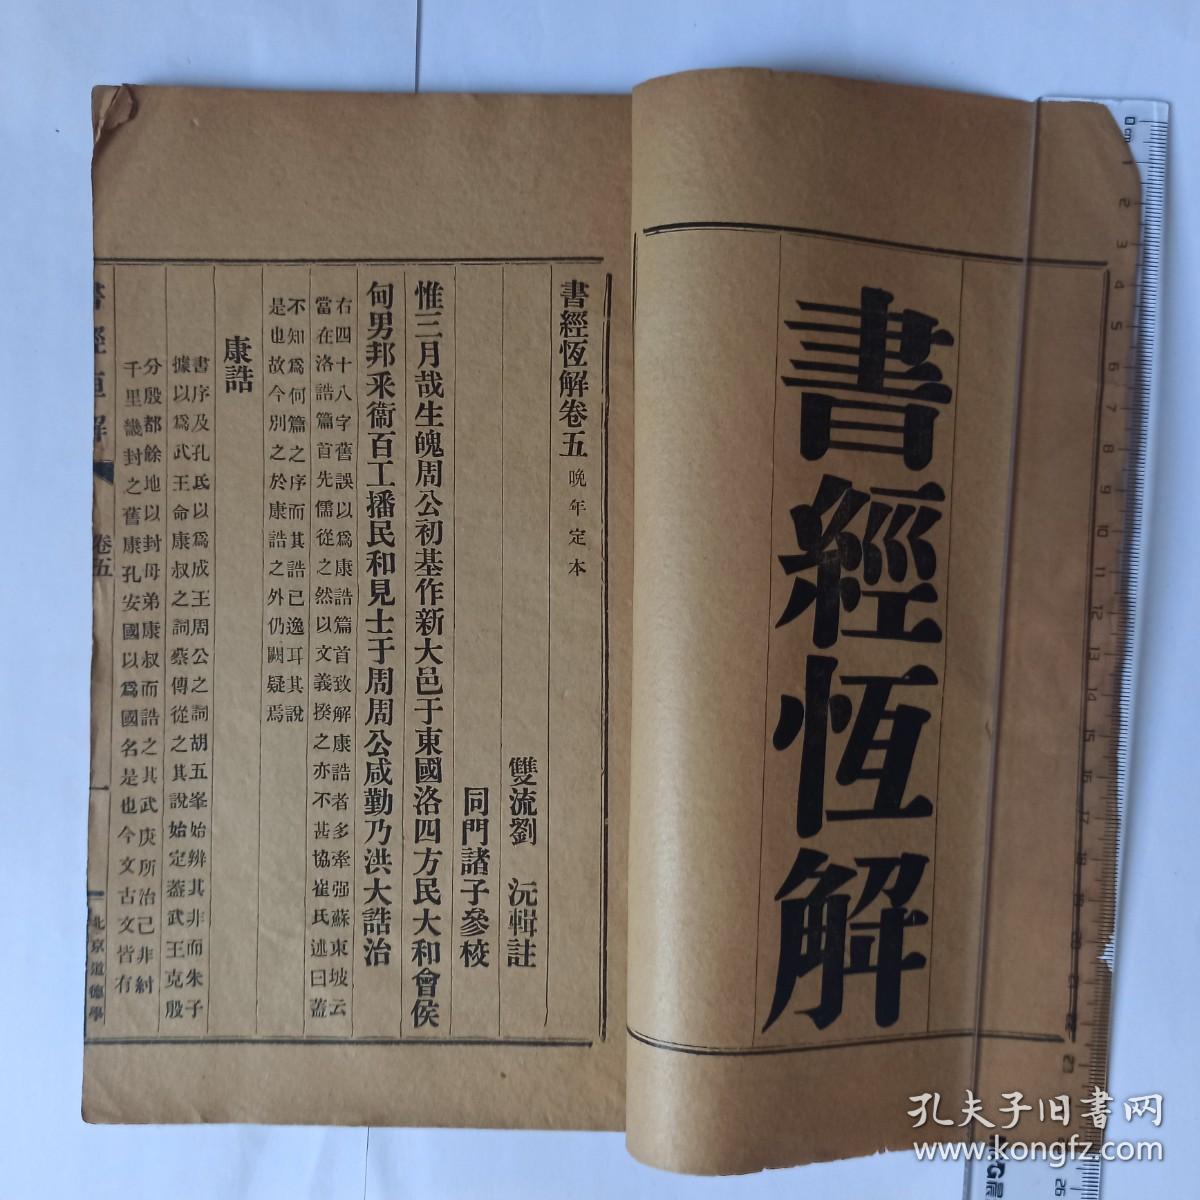 書經恆解
書經恆解卷五 晚年定本
雙流劉 沅輯註
同門諸子參校
惟三月哉生魄周公初基作新大邑于東國洛四方民大和會侯
甸男邦采衞百工播民和見士于周周公咸勤乃洪大誥治
右四十八字舊誤以爲康誥篇首致解康誥者多牽强蘇東坡云
當在洛誥篇首先儒從之然以文義揆之亦不甚協崔氏述曰蓋
不知爲何篇之序而其誥已逸耳其說
是也故今別之於康誥之外仍闕疑焉
康誥
書序及孔氏以爲成王周公之詞胡五峯始辨其非而朱子
據以爲武王命康叔之詞蔡傳從之其說始定蓋武王克殷
分殷都餘地以封母弟康叔而誥之其武庚所治已非紂
千里畿封之舊康孔安國以爲國名是也今文古文皆有
書經恆解
卷五
一
北京道德學
孔夫子旧書网
www.kongfz.com
0 cm 1 2 3 4 5 6 7 8 9 10 11 12 13 14 15 16 17 18 19 20 21 22 23
26